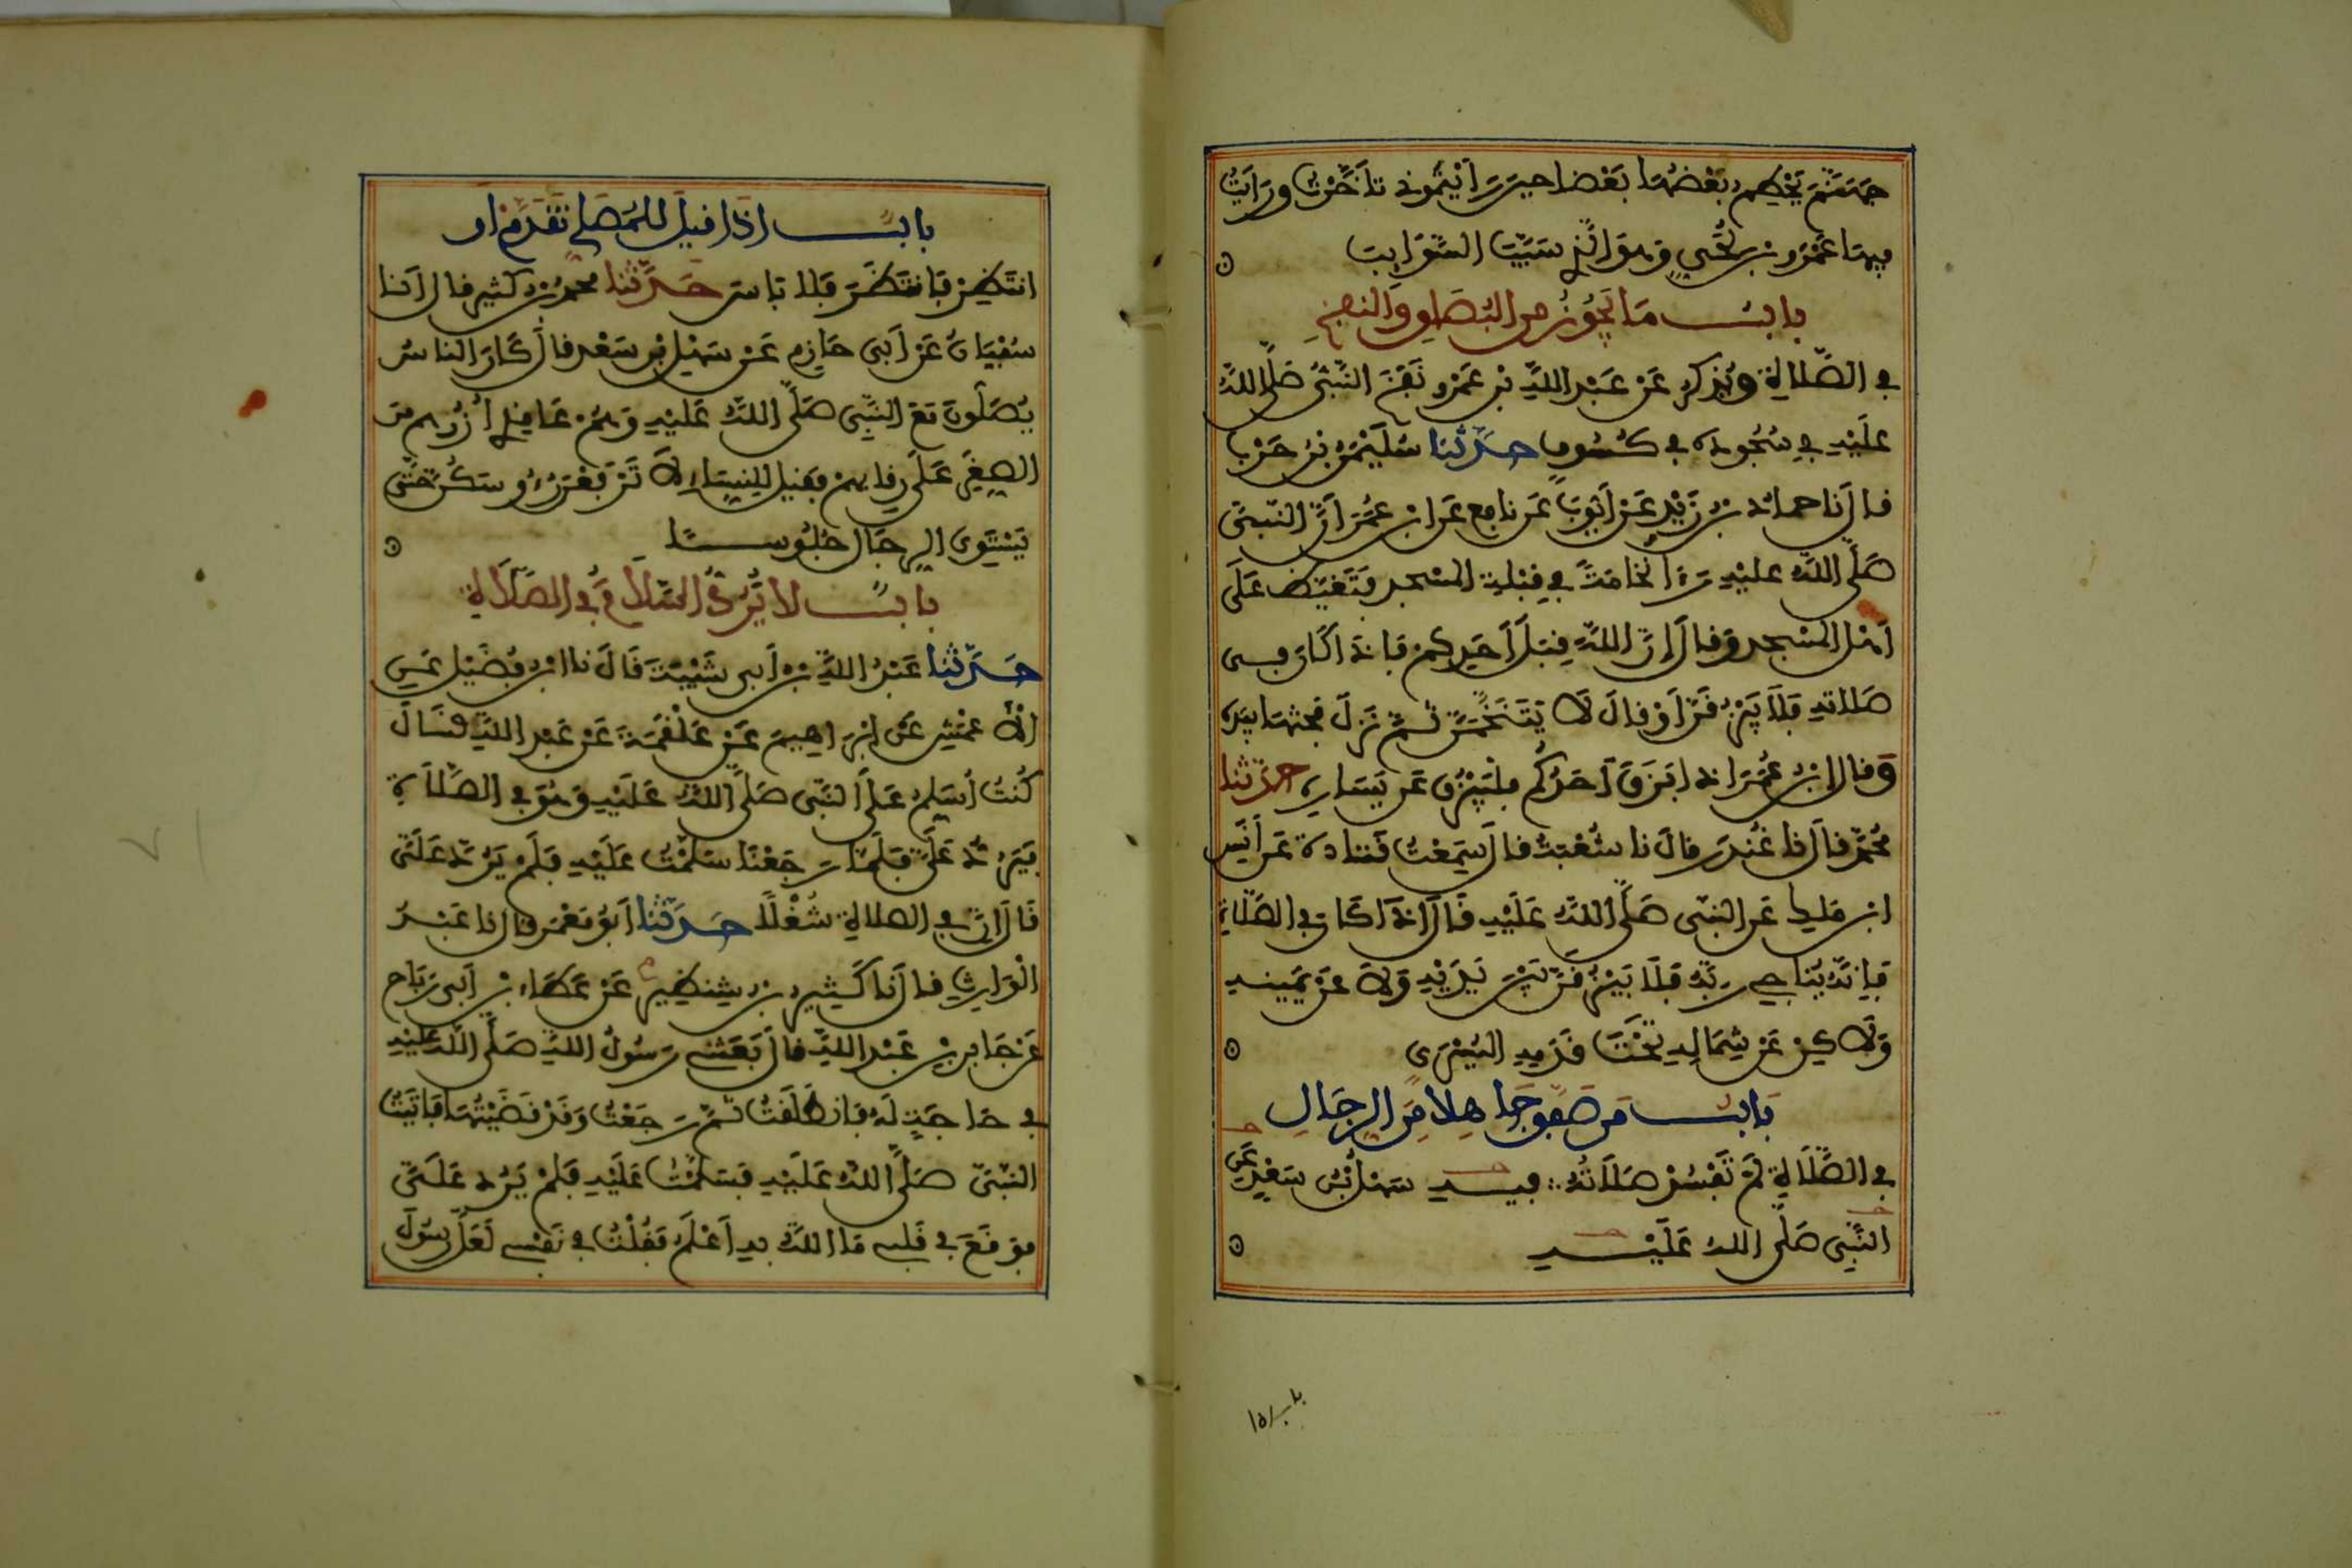 جهنم يحطم بعضها بعضا حين رأيتموني تأخرت ورأيت
فيها عمرو بن لحي وهو الذي سيب السوايب
باب ما يجوز من البصاق والنفخ
في الصلاة ويذكر عن عبد الله بن عمرو نفخ النبي صلى الله
عليه في سجوده في كسوف حدثنا سليمن بن حرب
قال نا حماد بن زيد عن أيوب عن نافع عن ابن عمر أن النبي
صلى الله عليه رءا نخامة في قبلة المسجد فتغيظ على
أهل المسجد وقال إن الله قبل أحدكم فإذا كان في
صلاته فلا يبزقن أو قال لا يتنخمن ثم نزل فحتها بيده
وقال ابن عمر إذا بزق أحدكم فليبزق عن يساره حدثنا
محمد قال نا غندر قال نا شعبة قال سمعت قتادة عن أنس
ابن ملك عن النبي صلى الله عليه قال إذا كان في الصلاة
فإنه يناجي ربه فلا يبزقن بين يديه ولا عن يمينه
ولاكن عن شماله تحت قدمه اليسرى
باب من صفق جاهلا من الرجال
في الصلاة لم تفسد صلاته فيه سهل بن سعد عن
النبي صلى الله عليه
باب ١٥
باب إذا قيل للمصلي تقدم أو
انتظر فانتظر فلا باس حدثنا محمد بن كثير قال أنا
سفيان عن أبي حازم عن سهل بن سعد قال كان الناس
يصلون مع النبي صلى الله عليه وهم عاقدي أزرهم من
الصغر على رقابهم فقيل للنساء لا ترفعن رءوسكن حتى
يستوي الرجال جلوسا
باب لا يرد السلام في الصلاة
حدثنا عبد الله بن أبي شيبة قال نا ابن فضيل عن
الأعمش عن إبراهيم عن علقمة عن عبد الله قال
كنت أسلم على النبي صلى الله عليه وهو في الصلاة
فيرد علي فلما رجعنا سلمت عليه فلم يرد علي
قال إن في الصلاة شغلا حدثنا أبو معمر قال نا عبد
الوارث قال نا كثير بن شنظير عن عطاء بن أبي رباح
عن جابر بن عبد الله قال بعثني رسول الله صلى الله عليه
في حاجة له فانطلقت ثم رجعت وقد قضيتها فأتيت
النبي صلى الله عليه فسلمت عليه فلم يرد علي
فوقع في قلبي ما الله به أعلم فقلت في نفسي لعل رسول